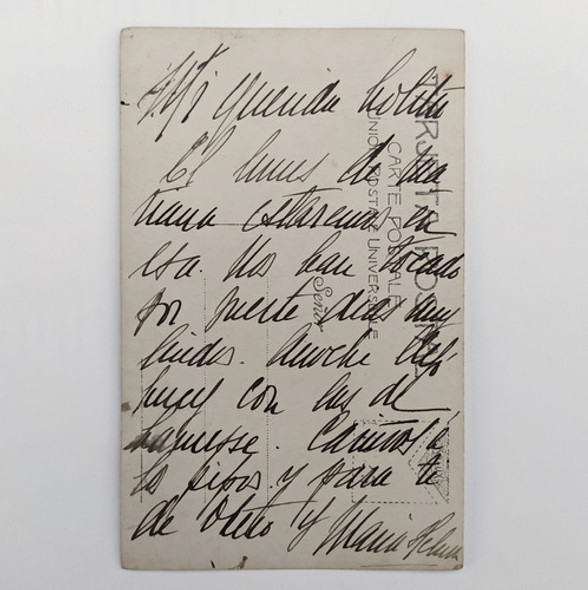 Mi querida Lolita
El lunes de ma
ñana estaremos en
esa. Nos han tocado
por suerte dias muy
lindos. Anoche
con las de
Cariños a
los pipos y para te
de Otto y Maria Helena
TARJETA POSTAL
CARTE POSTALE
UNION POSTALE UNIVERSELLE
Señor